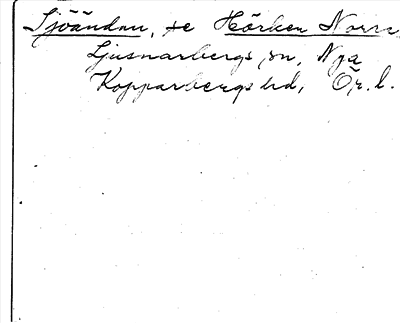 Sjöändan, se Hörken Norra,
Ljusnarbergs sn, Nya
Kopparbergs hd, Ör. l.